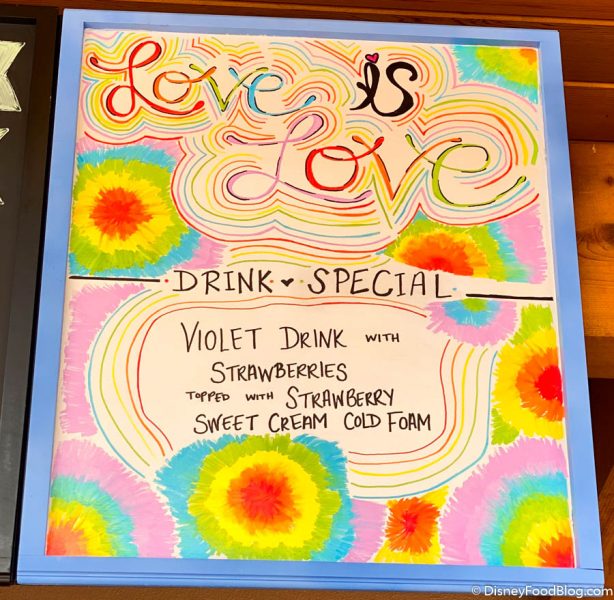 Love is
Love
DRINK ♥ SPECIAL
VIOLET DRINK WITH
STRAWBERRIES
TOPPED WITH STRAWBERRY
SWEET CREAM COLD FOAM
©DisneyFoodBlog.com